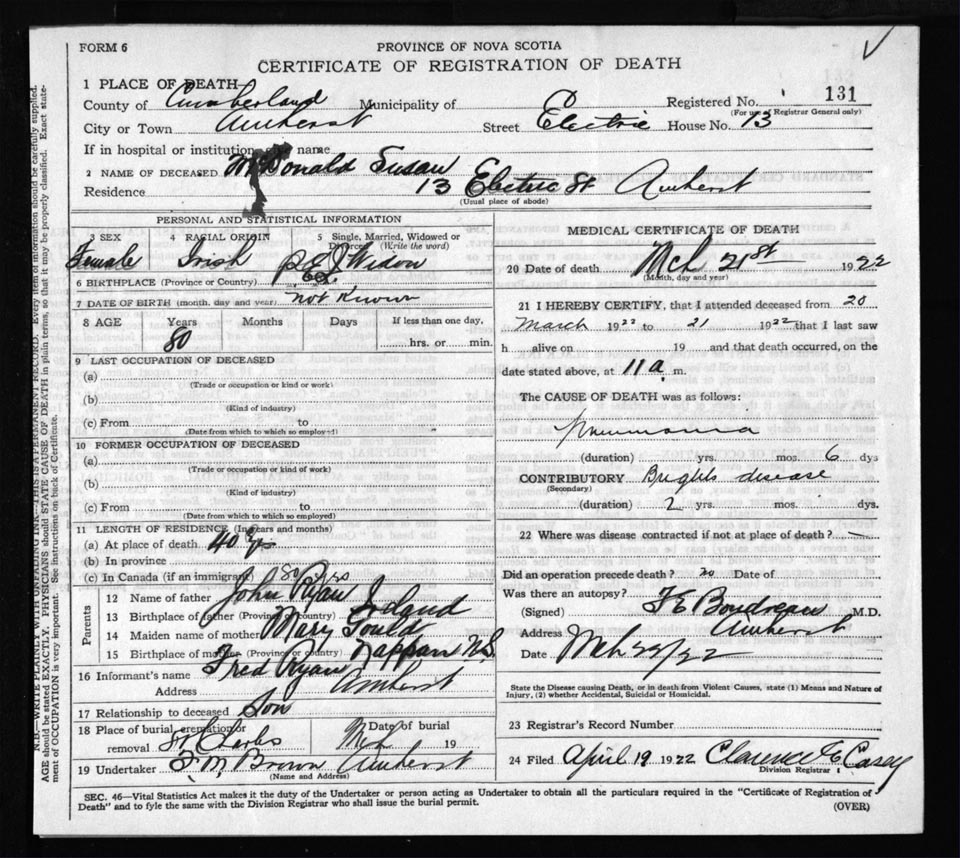 FORM 6
PROVINCE OF NOVA SCOTIA
CERTIFICATE OF REGISTRATION OF DEATH
1 PLACE OF DEATH
County of Cumberland Municipality of Registered No. 131
(For use of Registrar General only)
City or Town Amherst Street Electric House No. 13
If in hospital or institution, give name
2 NAME OF DECEASED McDonald Susan
Residence 13 Electric St Amherst
(Usual place of abode)
PERSONAL AND STATISTICAL INFORMATION
3 SEX 4 RACIAL ORIGIN 5 Single, Married, Widowed or Divorced (Write the word)
Female Irish Widow
6 BIRTHPLACE (Province or Country) P.E.I.
7 DATE OF BIRTH (month, day and year) not known
8 AGE Years Months Days If less than one day,
80 hrs. or min.
9 LAST OCCUPATION OF DECEASED
(a)
(Trade or occupation or kind or work)
(b)
(Kind of industry)
(c) From to
(Date from which to which so employed)
10 FORMER OCCUPATION OF DECEASED
(a)
(Trade or occupation or kind of work)
(b)
(Kind of industry)
(c) From to
(Date from which to which so employed)
11 LENGTH OF RESIDENCE (In years and months)
(a) At place of death 40 yrs
(b) In province
(c) In Canada (if an immigrant) 80 yrs
Parents
12 Name of father John Ryan
13 Birthplace of father (Province or country) Ireland
14 Maiden name of mother Mary Gould
15 Birthplace of mother (Province or country) Nappan N.S.
16 Informant's name Fred Ryan
Address Amherst
17 Relationship to deceased Son
18 Place of burial, cremation or removal St Charles Date of burial Mch 19
19 Undertaker Brown Amherst
(Name and Address)
MEDICAL CERTIFICATE OF DEATH
20 Date of death Mch 21st 1922
(Month, day and year)
21 I HEREBY CERTIFY, that I attended deceased from 20
March 1922 to 21 1922 that I last saw
h alive on 19 and that death occurred, on the
date stated above, at 11 a. m.
The CAUSE OF DEATH was as follows:
Pneumonia
(duration) yrs. mos. 6 dys
CONTRIBUTORY Brights disease
(Secondary)
(duration) 2 yrs. mos. dys.
22 Where was disease contracted if not at place of death?
Did an operation precede death? no Date of
Was there an autopsy?
(Signed) F E Boudreau M.D.
Address Amherst
Date Mch 22/22
State the Disease causing Death, or in death from Violent Causes, state (1) Means and Nature of
Injury, (2) whether Accidental, Suicidal or Homicidal.
23 Registrar's Record Number
24 Filed April 19 1922 Clarence E Casey
Division Registrar
SEC. 46—Vital Statistics Act makes it the duty of the Undertaker or person acting as Undertaker to obtain all the particulars required in the "Certificate of Registration of
Death" and to fyle the same with the Division Registrar who shall issue the burial permit.
(OVER)
N.B.—WRITE PLAINLY WITH UNFADING INK—THIS IS A PERMANENT RECORD. Every item of information should be carefully supplied.
AGE should be stated EXACTLY. PHYSICIANS should STATE CAUSE OF DEATH in plain terms, so that it may be properly classified. Exact state-
ment of OCCUPATION is very important. See instructions on back of Certificate.